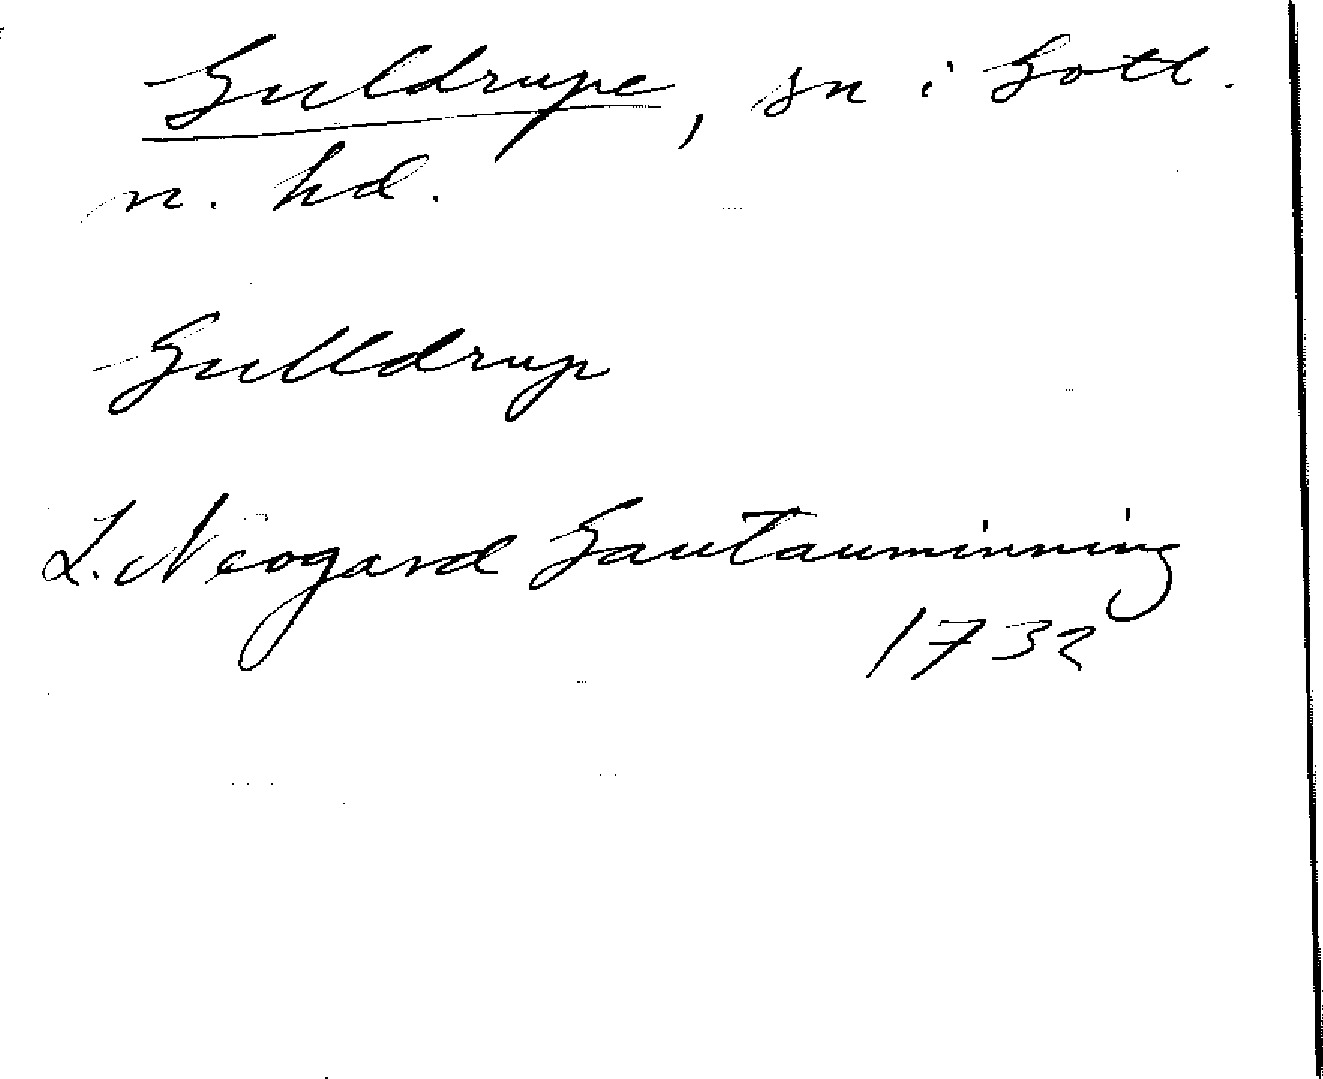 Guldrupe, sn i Gotl.
n. hd.
Gulldrup
L. Neogard Gautauminning
1732